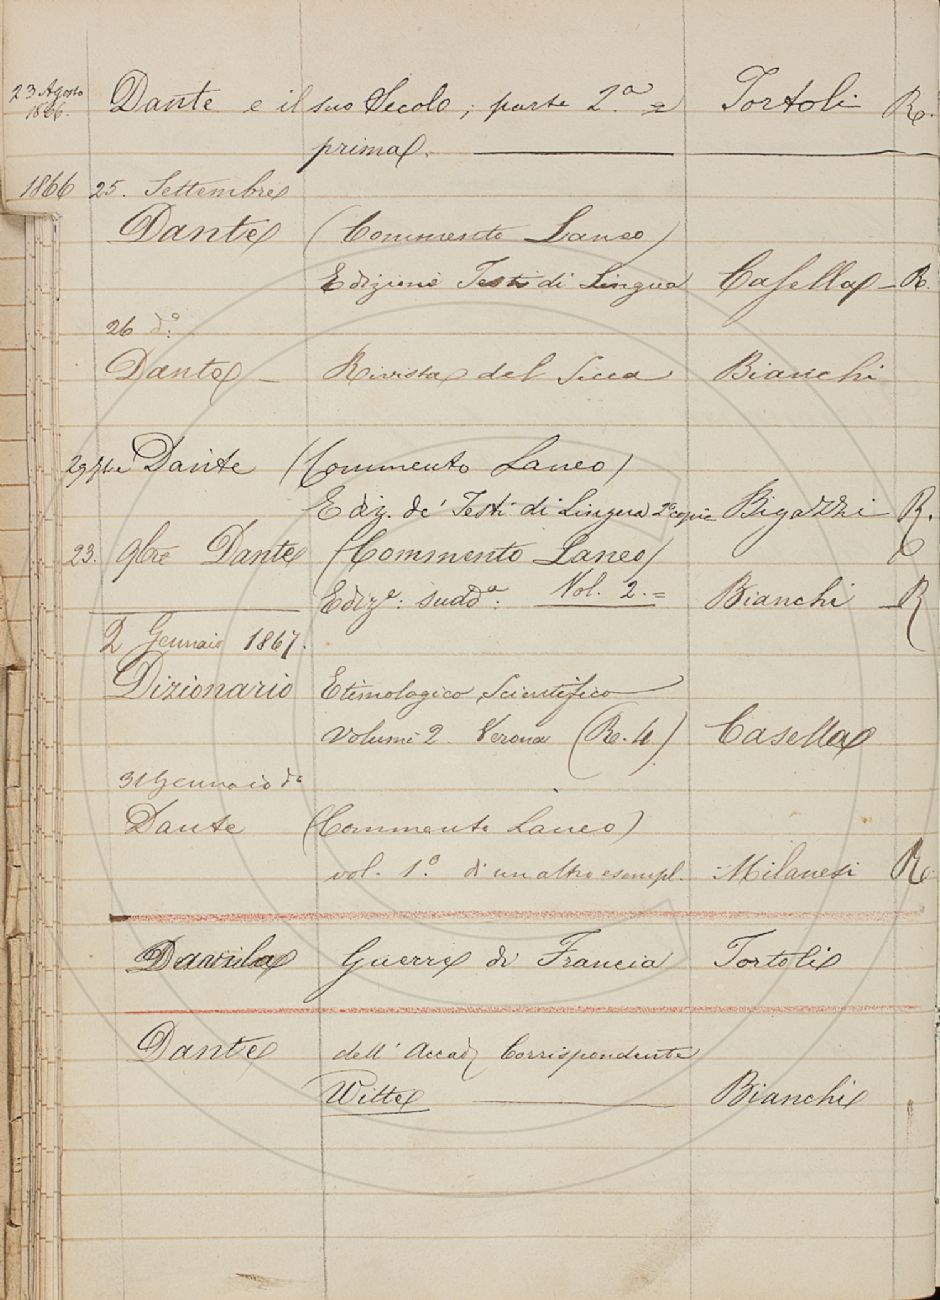 23 Agosto 1866. Dante e il suo Secolo; parte 2.a = Tortoli R.
prima.
1866 25. Settembre
Dante (Commento Laneo)
Edizione Testi di Lingua Casella - R.
26 do:
Dante - Rivista del Sicca Bianchi
29 7bre Dante (Commento Laneo)
Ediz. de' Testi di Lingua 2a copia Bigazzi R.
23. 9bre Dante (Commento Laneo)
Ediza: sudda: Vol. 2. = Bianchi - R
2 Gennaio 1867.
Dizionario Etimologico Scientifico
volumi 2. Verona (R. 4) Casella
31 Gennaio do
Dante (Commento Laneo)
vol. 1.o di un altro esempl. Milanesi R.
Davila Guerre di Francia Tortoli
Dante dell' Accad Corrispondente
Witte Bianchi